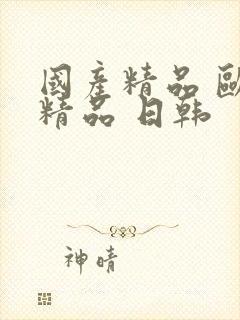 國產精品 歐
精品 日韩
神晴